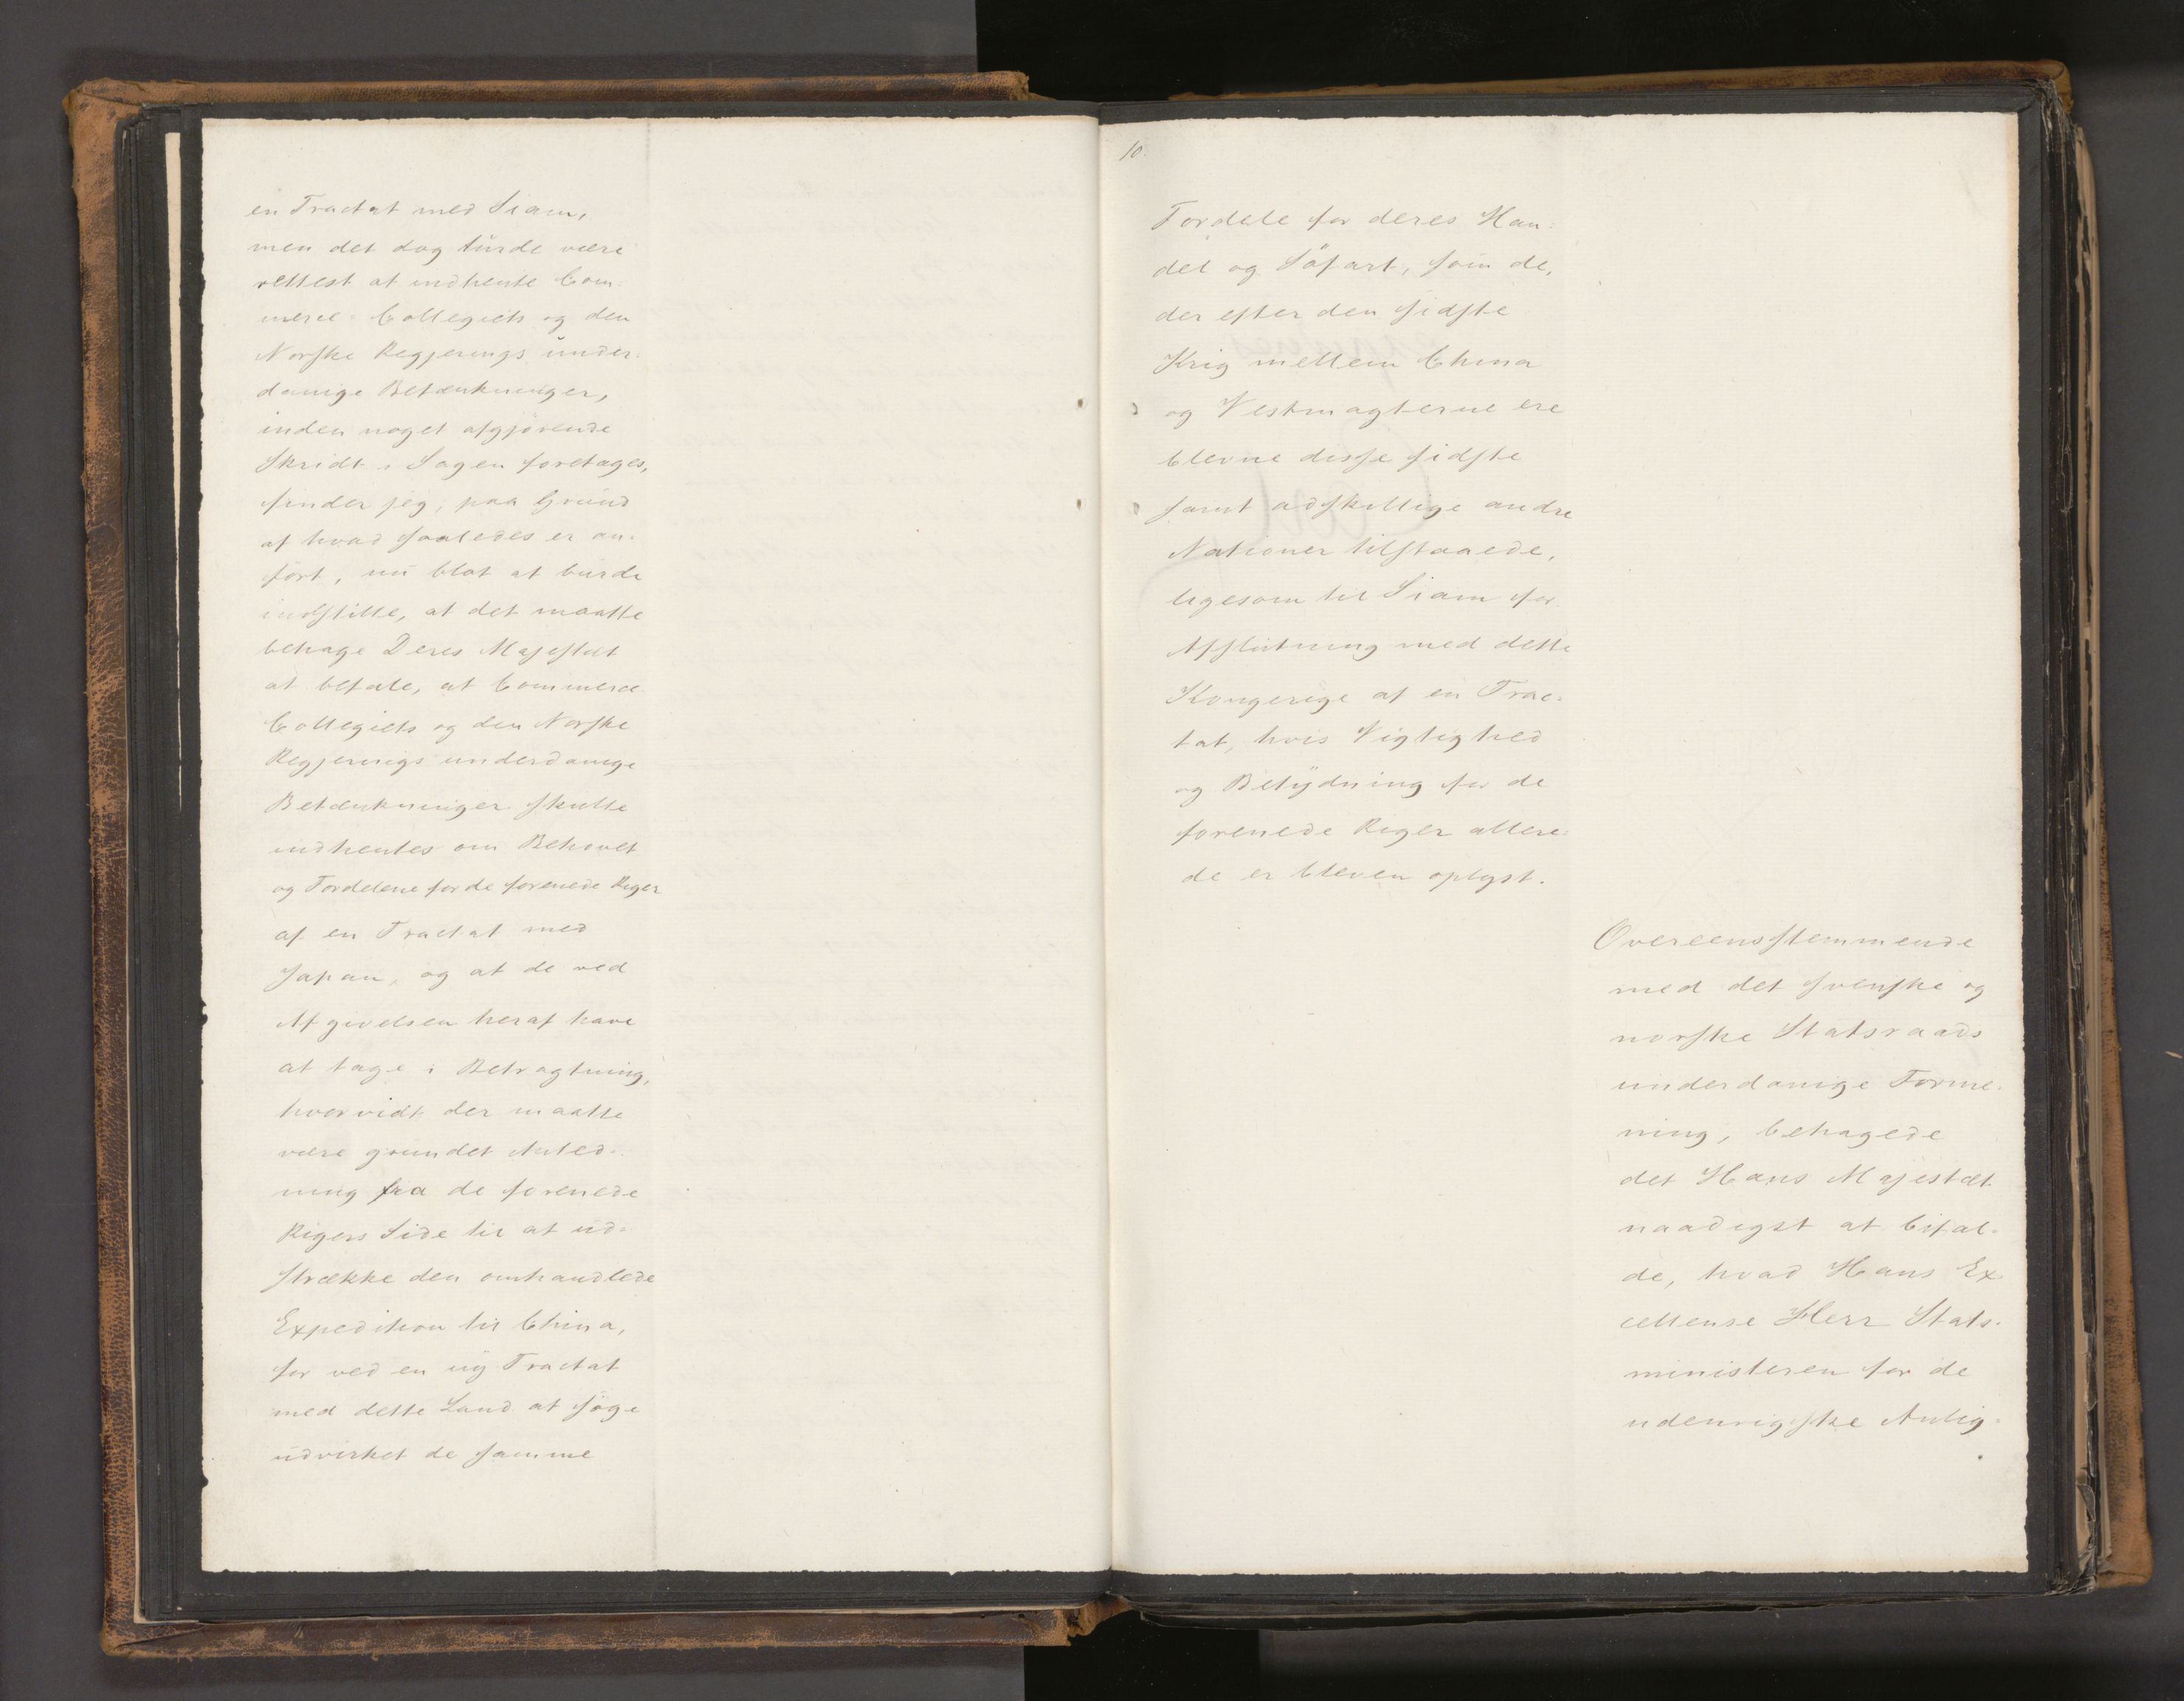 en Tractat med Siam,
men det dog türde være
rettest at indhente Com-
merce-Collegiets og den
Norske Regjerings ünder-
danige Betænkninger,
inden noget afgjörende
Skridt i Sagen foretages,
finder jeg, paa Gründ
af hvad saaledes er an-
fört, nü blot at bürde
indstille, at det maatte
behage Deres Majestæt
at befale, at Commerce
Collegiets og den Norske
Regjerings underdanige
Betænkninger skulle
indhentes om Behovet
og Fordelene for de forenede Riger
af en Tractat med
Japan, og at de ved
Afgivelsen heraf have
at tage i Betragtning,
hvorvidt der maatte
være grundet Anled-
ning fra de forenede
Rigers Side til at ud-
strække den omhandlede
Expedition til China,
for ved en ny Tractat
med dette Land at söge
udvirket de samme
10.
Fordele for deres Han-
del og Söfart, som de,
der efter den sidste
Krig mellem China
og Vestmagterne ere
blevne disse sidste
samt adskillige andre
Nationer tilstaaede,
ligesom til Siam for
Afslutning med dette
Kongerige af en Trac-
tat, hvis Vigtighed
og Betÿdning for de
forenede Riger allere-
de er bleven oplyst.
Overeensstemmende
med det svenske og
norske Statsraads
underdanige Forme-
ning, behagede
det Hans Majestæt
naadigst at bifal-
de, hvad Hans Ex
cellense Herr Stats-
ministeren for de
udenrigske Anlig-